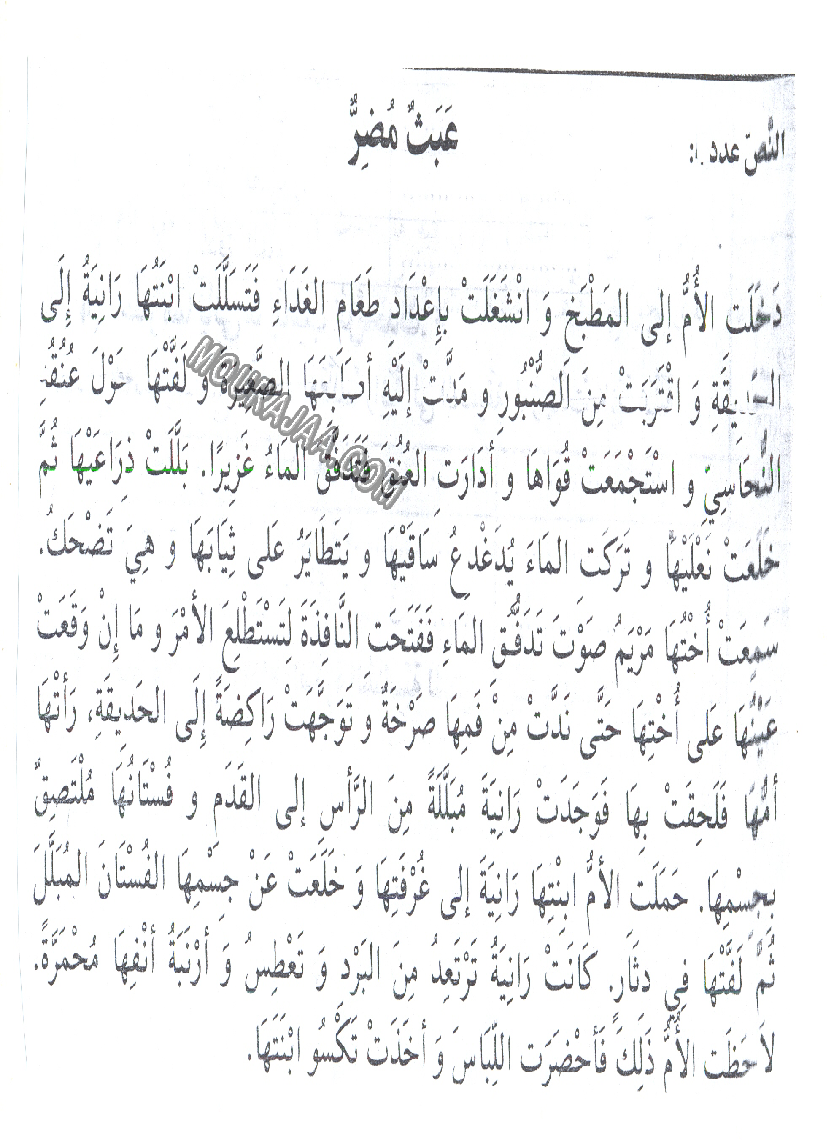 النَّصّ عدد 1:
عَبَثٌ مُضِرٌّ
دَخَلَت الأُمُّ إلى المَطْبَخِ وَ انْشَغَلَتْ بِإعْدَادِ طَعَام الغَدَاءِ فَتَسَلَّلَتْ ابْنَتُهَا رَانِيَةُ إِلَى
الحَدِيقَةِ وَ اقْتَرَبَتْ مِنَ الصُّنْبُورِ و مَدَّتْ إلَيْهِ أصَابِعَهَا الصَّغِيرَةَ و لَفَّتْهَا حَوْلَ عُنُقِهِ
النُّحَاسِيِّ و اسْتَجْمَعَتْ قُوَاهَا و أدَارَتِ العُنُقَ فَتَدَفَّقَ المَاءُ غَزِيرًا. بَلَّلَتْ ذِرَاعَيْهَا ثُمَّ
خَلَعَتْ نَعْلَيْهَا و تَرَكَت المَاءَ يُدَغْدِغُ سَاقَيْهَا و يَتَطَايَرُ عَلى ثِيَابَهَا و هِيَ تَضْحَكُ.
سَمِعَتْ أُخْتُهَا مَرْيَمُ صَوْتَ تَدَفُّقِ المَاءِ فَفَتَحَت النَّافِذَةَ لِتَسْتَطْلِعَ الأمْرَ و مَا إنْ وَقَعَتْ
عَيْنُهَا عَلى أُخْتِهَا حَتَّى نَدَّتْ مِنْ فَمِهَا صَرْخَةٌ وَ تَوَجَّهَتْ رَاكِضَةً إِلَى الحَدِيقَةِ، رَأتْهَا
أمُّهَا فَلَحِقَتْ بِهَا فَوَجَدَتْ رَانِيَةَ مُبَلَّلَةً مِنَ الرَّأسِ إلى القَدَمِ و فُسْتَانُهَا مُلْتَصِقٌ
بِجِسْمِهَا. حَمَلَت الأمُّ ابنتِهَا رَانِيَةَ إلى غُرْفَتِهَا وَ خَلَعَتْ عَنْ جِسْمِهَا الفُسْتَانَ المُبَلَّلَ
ثُمَّ لَفَّتْهَا فِي دثَارٍ. كَانَتْ رَانِيَةُ تَرْتَعِدُ مِنَ البَرْدِ وَ تَعْطِسُ وَ أرْنَبَةُ أنْفِهَا مُحْمَرَّةٌ.
لاَحَظَت الأُمُّ ذَلِكَ فَأحْضَرَت اللِّبَاسَ وَ أخَذَتْ تَكْسُو ابْنَتَهَا.
MOURAJAA.COM